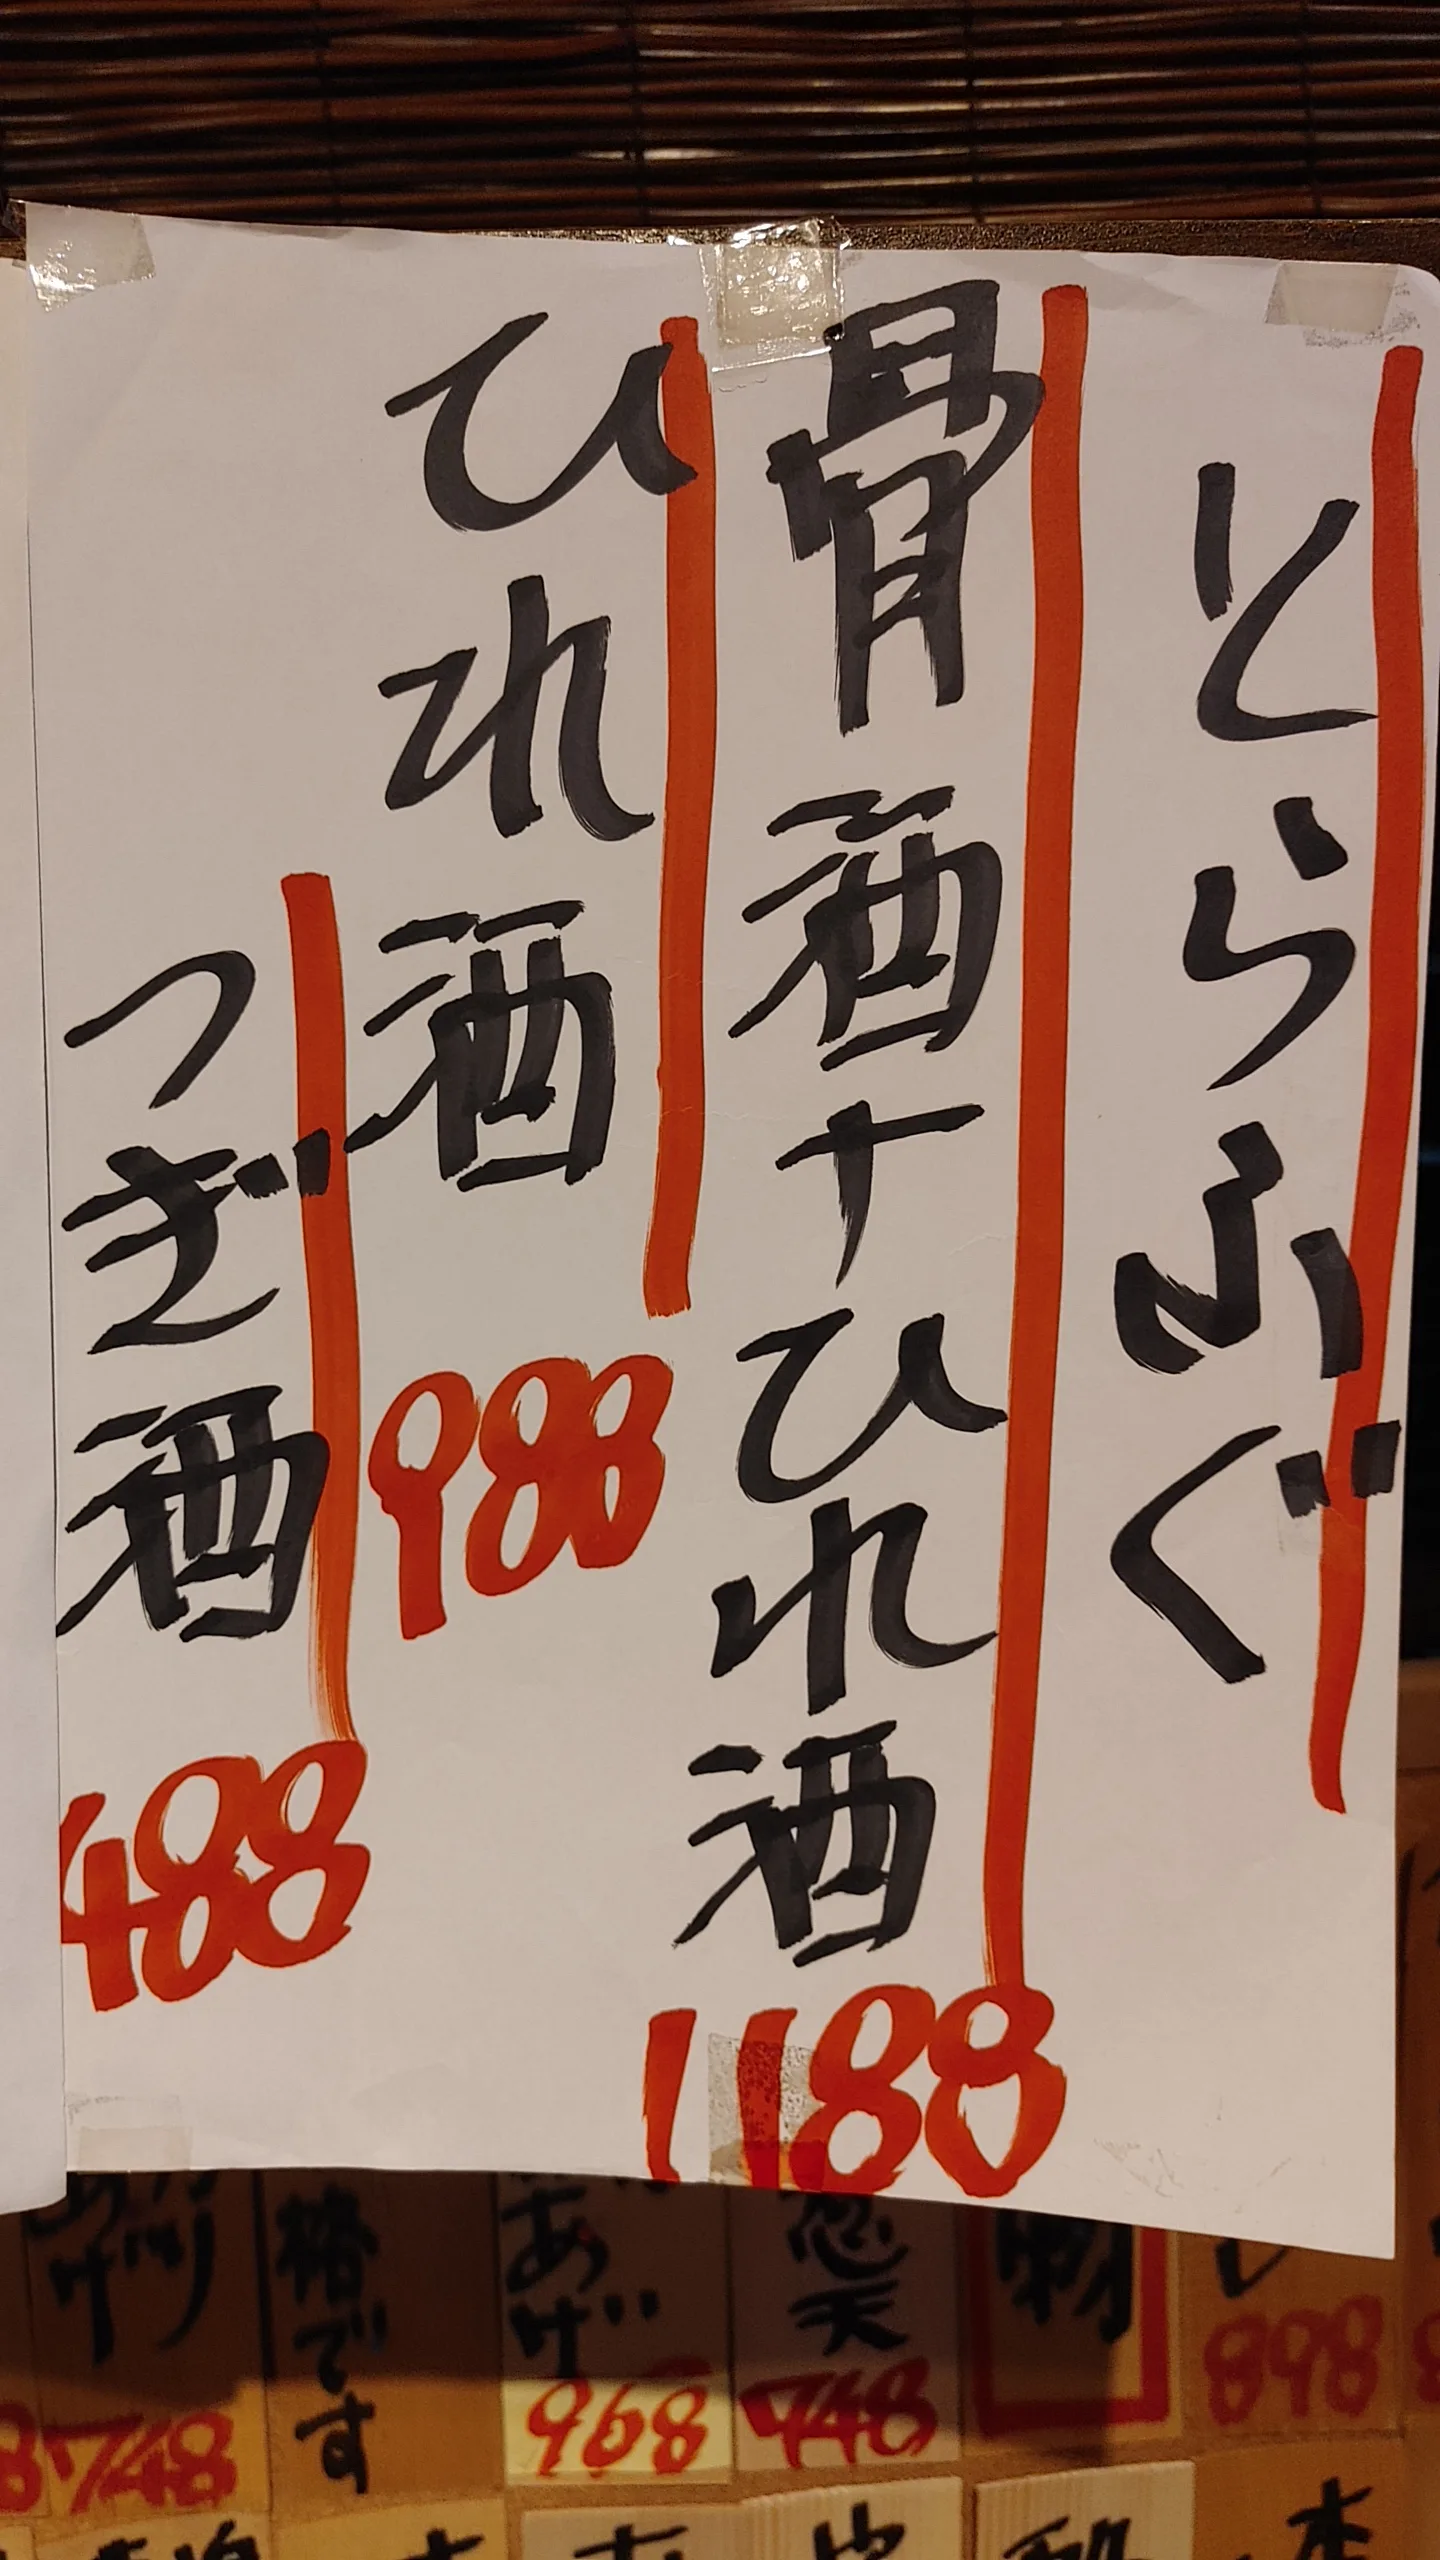 とらふぐ
骨酒+ひれ酒
1188
ひれ酒
988
つぎ酒
488
898
748
あげ
968
格です
748